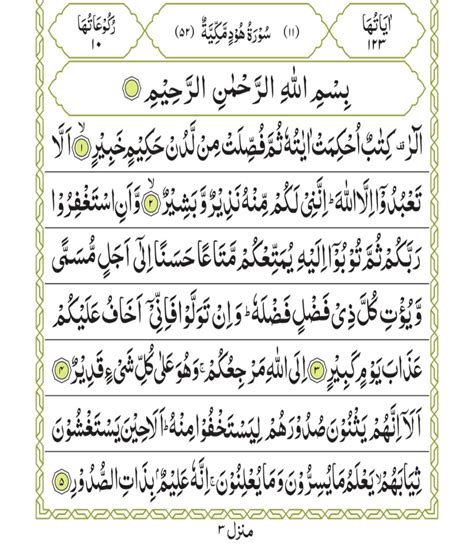 اٰیَاتُهَا ١٢٣ (١١) سُوْرَةُ هُوْدٍ مَّكِّیَّةٌ (٥٢) رُكُوْعَاتُهَا ١٠
بِسْمِ اللّٰهِ الرَّحْمٰنِ الرَّحِیْمِ
الٓرٰ ۫ كِتٰبٌ اُحْكِمَتْ اٰیٰتُهٗ ثُمَّ فُصِّلَتْ مِنْ لَّدُنْ حَكِیْمٍ خَبِیْرٍ ۙ ١ اَلَّا
تَعْبُدُوْۤا اِلَّا اللّٰهَ ؕ اِنَّنِیْ لَكُمْ مِّنْهُ نَذِیْرٌ وَّ بَشِیْرٌ ۙ ٢ وَّ اَنِ اسْتَغْفِرُوْا
رَبَّكُمْ ثُمَّ تُوْبُوْۤا اِلَیْهِ یُمَتِّعْكُمْ مَّتَاعًا حَسَنًا اِلٰۤی اَجَلٍ مُّسَمًّی
وَّ یُؤْتِ كُلَّ ذِیْ فَضْلٍ فَضْلَهٗ ؕ وَ اِنْ تَوَلَّوْا فَاِنِّیْۤ اَخَافُ عَلَیْكُمْ
عَذَابَ یَوْمٍ كَبِیْرٍ ٣ اِلَی اللّٰهِ مَرْجِعُكُمْ ۚ وَ هُوَ عَلٰی كُلِّ شَیْءٍ قَدِیْرٌ ٤
اَلَاۤ اِنَّهُمْ یَثْنُوْنَ صُدُوْرَهُمْ لِیَسْتَخْفُوْا مِنْهُ ؕ اَلَا حِیْنَ یَسْتَغْشُوْنَ
ثِیَابَهُمْ ۙ یَعْلَمُ مَا یُسِرُّوْنَ وَ مَا یُعْلِنُوْنَ ۚ اِنَّهٗ عَلِیْمٌۢ بِذَاتِ الصُّدُوْرِ ٥
منزل ٣